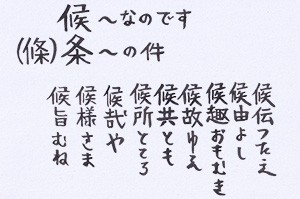 候〜なのです
(條)条〜の件
候伝つたえ
候由よし
候趣おもむき
候故ゆえ
候共とも
候所ところ
候哉や
候様さま
候旨むね